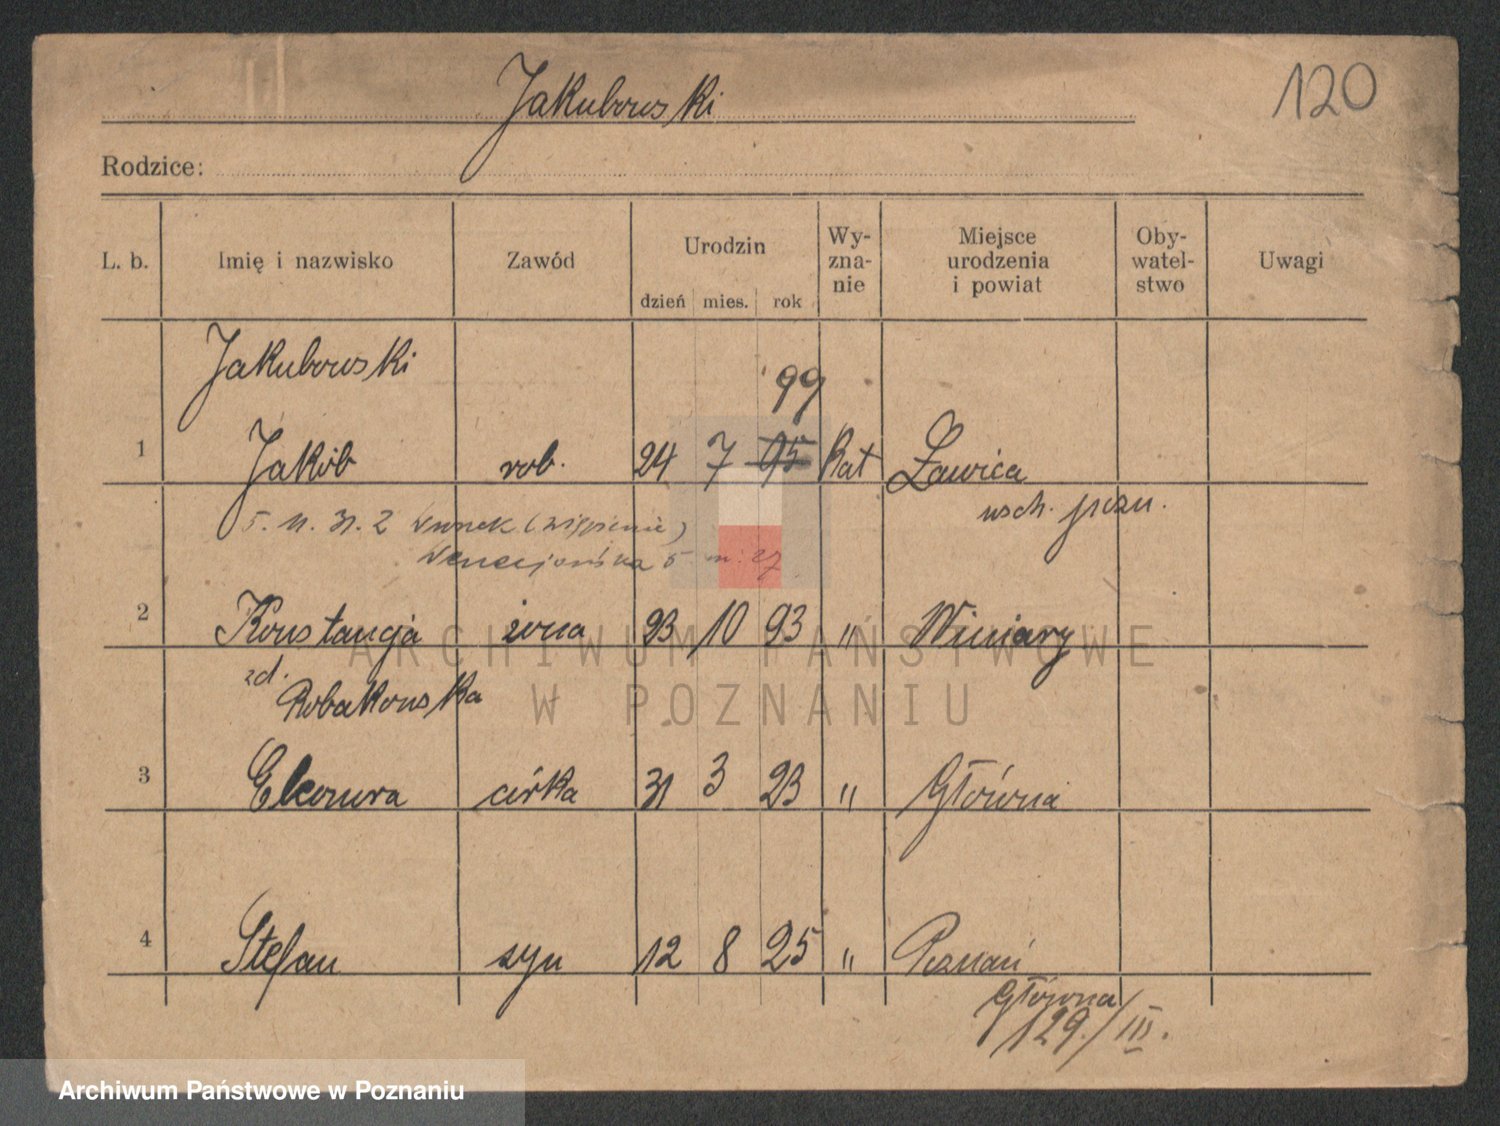 Jakubowski
120
Rodzice:
L. b.
Imię i nazwisko
Zawód
Urodzin
dzień mies. rok
Wy-
zna-
nie
Miejsce
urodzenia
i powiat
Oby-
watel-
stwo
Uwagi
Jakubowski
99
1 Jakób rob. 24 7 95 Kat Ławica
wsch. pozn.
5. 11. 31. z (więzienie)
5 m. 27
2 Konstancja żona 23 10 93 " Winiary
zd.
Robakowska
3 Eleonora córka 31 3 23 " Główna
4 Stefan syn 12 8 25 " Poznań
Główna
129./III.
ARCHIWUM PAŃSTWOWE
W POZNANIU
Archiwum Państwowe w Poznaniu